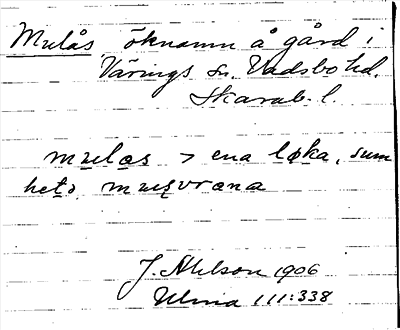 Mulås, öknamn å gård i
Värings sn. Vadsbo hd.
Skarab. l.
mulas > ena løka, sum
heta
J. Ahlson 1906
Ulma 111:338